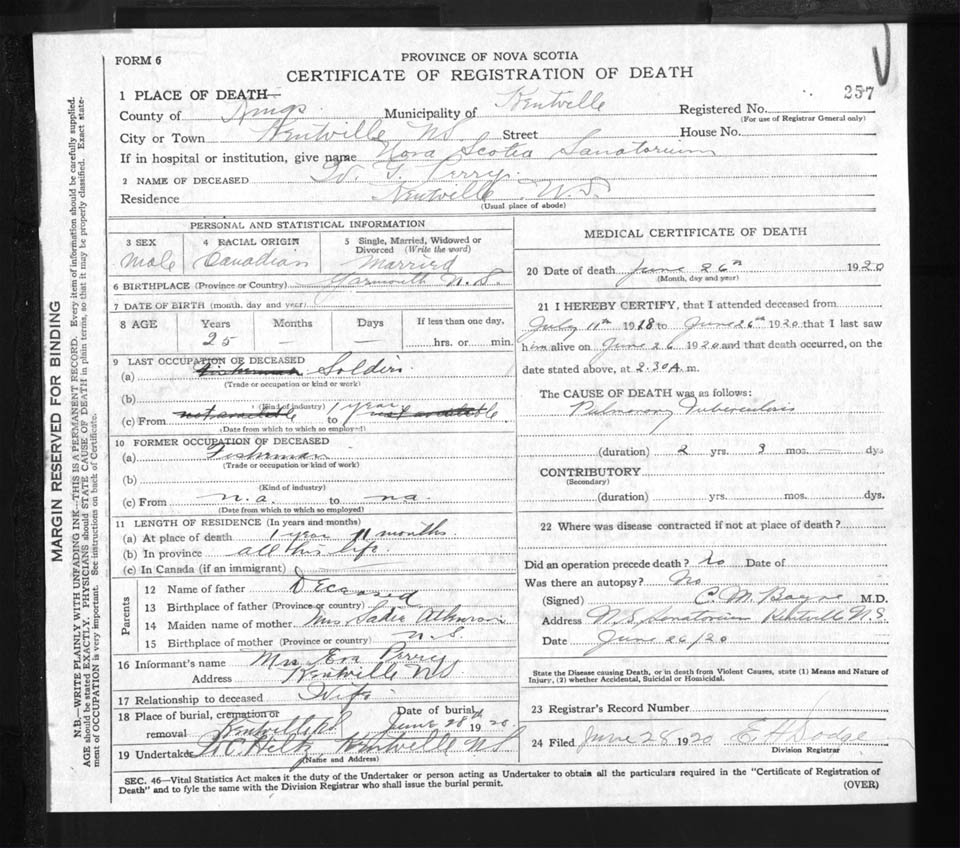 FORM 6
PROVINCE OF NOVA SCOTIA
CERTIFICATE OF REGISTRATION OF DEATH
257
1 PLACE OF DEATH
County of Kings Municipality of Kentville Registered No.
(For use of Registrar General only)
City or Town Kentville NS Street House No.
If in hospital or institution, give name Nova Scotia Sanatorium
2 NAME OF DECEASED W. T. Perry.
Residence Kentville N.S
(Usual place of abode)
PERSONAL AND STATISTICAL INFORMATION
3 SEX 4 RACIAL ORIGIN 5 Single, Married, Widowed or Divorced (Write the word)
Male Canadian Married
6 BIRTHPLACE (Province or Country) Yarmouth N.S.
7 DATE OF BIRTH (month, day and year)
8 AGE Years Months Days If less than one day,
25 — — hrs. or min.
9 LAST OCCUPATION OF DECEASED
(a) Fisherman Soldier
(Trade or occupation or kind or work)
(b)
(Kind of industry)
(c) From not available to 1 year not available
(Date from which to which so employed)
10 FORMER OCCUPATION OF DECEASED
(a) Fisherman
(Trade or occupation or kind of work)
(b)
(Kind of industry)
(c) From n.a. to na.
(Date from which to which so employed)
11 LENGTH OF RESIDENCE (In years and months)
(a) At place of death 1 year 11 months.
(b) In province all his life
(c) In Canada (if an immigrant)
Parents
12 Name of father Deceased
13 Birthplace of father (Province or country)
14 Maiden name of mother Mrs Sadie Atkinson
15 Birthplace of mother (Province or country) N.S
16 Informant's name Mrs Eva Perry
Address Kentville NS
17 Relationship to deceased Wife
18 Place of burial, cremation or removal Kentville NS Date of burial June 28th 1920.
19 Undertaker Kentville NS
(Name and Address)
MEDICAL CERTIFICATE OF DEATH
20 Date of death June 26th 1920
(Month, day and year)
21 I HEREBY CERTIFY, that I attended deceased from
July 11th 1918 to June 26th 1920 that I last saw
him alive on June 26 1920 and that death occurred, on the
date stated above, at 2.30 A.m.
The CAUSE OF DEATH was as follows:
Pulmonary Tuberculosis
(duration) 2 yrs. 3 mos. — dys
CONTRIBUTORY
(Secondary)
(duration) yrs. mos. dys.
22 Where was disease contracted if not at place of death?
Did an operation precede death? No Date of
Was there an autopsy? No
(Signed) C. M. Bayne M.D.
Address N.S. Sanatorium Kentville N.S.
Date June 26/20
State the Disease causing Death, or in death from Violent Causes, state (1) Means and Nature of
Injury, (2) whether Accidental, Suicidal or Homicidal.
23 Registrar's Record Number
24 Filed June 28 1920 E H Dodge
Division Registrar
SEC. 46—Vital Statistics Act makes it the duty of the Undertaker or person acting as Undertaker to obtain all the particulars required in the "Certificate of Registration of
Death" and to fyle the same with the Division Registrar who shall issue the burial permit.
(OVER)
MARGIN RESERVED FOR BINDING
N.B.—WRITE PLAINLY WITH UNFADING INK—THIS IS A PERMANENT RECORD. Every item of information should be carefully supplied.
AGE should be stated EXACTLY. PHYSICIANS should STATE CAUSE OF DEATH in plain terms, so that it may be properly classified. Exact state-
ment of OCCUPATION is very important. See instructions on back of Certificate.